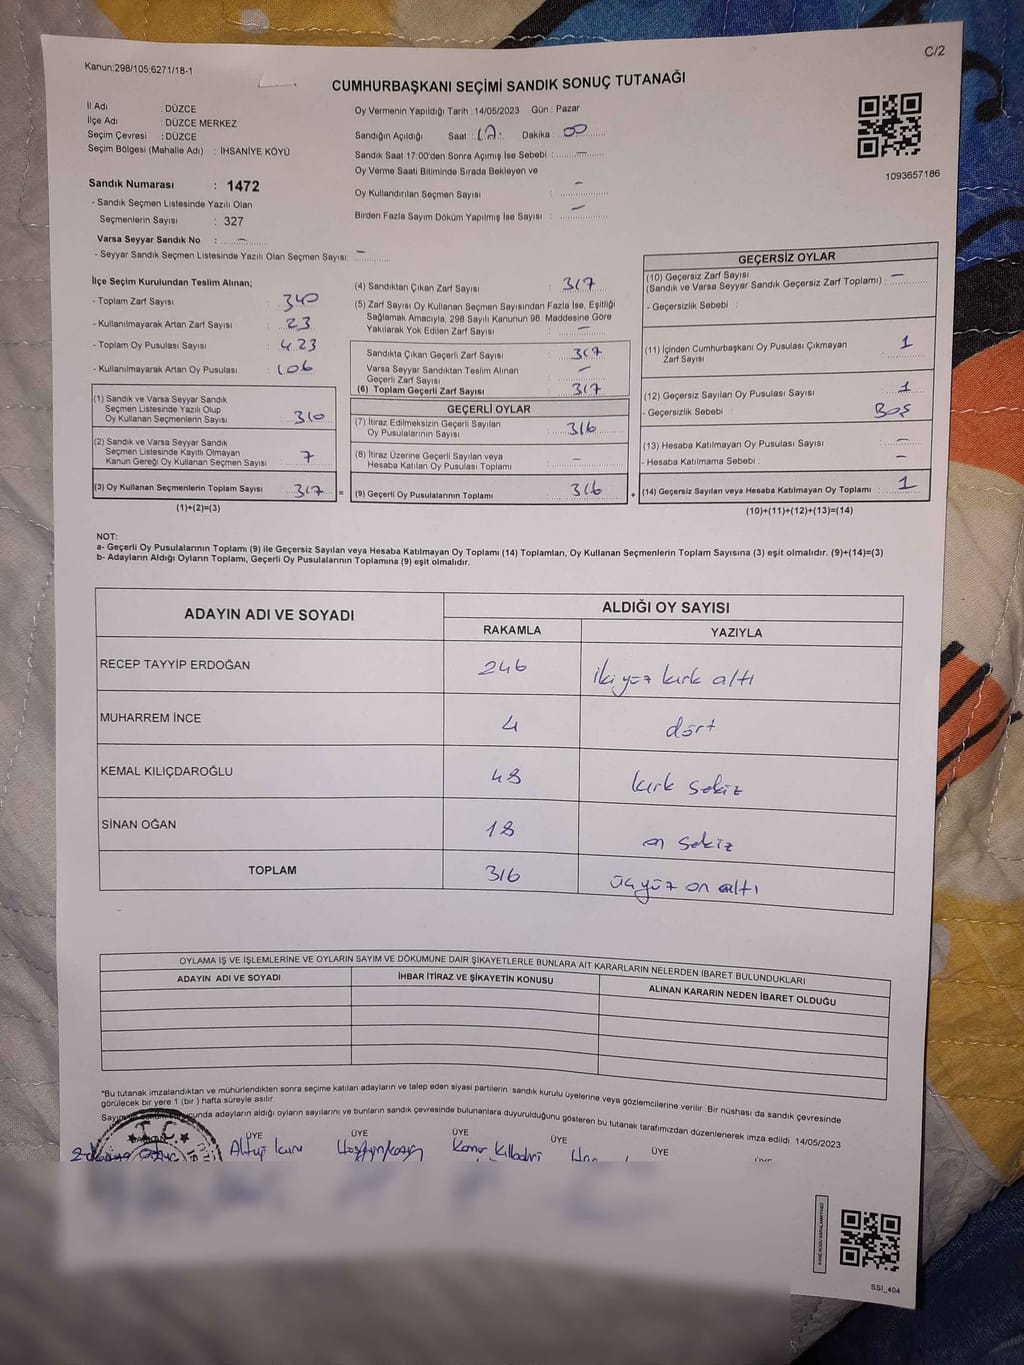 C/2
Kanun:298/105,6271/18-1
CUMHURBAŞKANI SEÇİMİ SANDIK SONUÇ TUTANAĞI
İl Adı : DÜZCE
İlçe Adı : DÜZCE MERKEZ
Seçim Çevresi : DÜZCE
Seçim Bölgesi (Mahalle Adı) : İHSANİYE KÖYÜ
Sandık Numarası : 1472
- Sandık Seçmen Listesinde Yazılı Olan
Seçmenlerin Sayısı : 327
Varsa Seyyar Sandık No : –
- Seyyar Sandık Seçmen Listesinde Yazılı Olan Seçmen Sayısı: –
Oy Vermenin Yapıldığı Tarih : 14/05/2023 Gün : Pazar
Sandığın Açıldığı Saat : 17 : Dakika : 00
Sandık Saat 17:00'den Sonra Açımış İse Sebebi : –
Oy Verme Saati Bitiminde Sırada Bekleyen ve
Oy Kullandırılan Seçmen Sayısı : –
Birden Fazla Sayım Döküm Yapılmış İse Sayısı : –
1093657186
İlçe Seçim Kurulundan Teslim Alınan;
- Toplam Zarf Sayısı : 340
- Kullanılmayarak Artan Zarf Sayısı : 23
- Toplam Oy Pusulası Sayısı : 423
- Kullanılmayarak Artan Oy Pusulası : 106
(1) Sandık ve Varsa Seyyar Sandık
Seçmen Listesinde Yazılı Olup
Oy Kullanan Seçmenlerin Sayısı : 310
(2) Sandık ve Varsa Seyyar Sandık
Seçmen Listesinde Kayıtlı Olmayan
Kanun Gereği Oy Kullanan Seçmen Sayısı : 7
(3) Oy Kullanan Seçmenlerin Toplam Sayısı : 317 =
(1)+(2)=(3)
(4) Sandıktan Çıkan Zarf Sayısı : 317
(5) Zarf Sayısı Oy Kullanan Seçmen Sayısından Fazla İse, Eşitliği
Sağlamak Amacıyla, 298 Sayılı Kanunun 98. Maddesine Göre
Yakılarak Yok Edilen Zarf Sayısı : –
Sandıkta Çıkan Geçerli Zarf Sayısı : 317
Varsa Seyyar Sandıktan Teslim Alınan
Geçerli Zarf Sayısı : –
(6) Toplam Geçerli Zarf Sayısı : 317
GEÇERLİ OYLAR
(7) İtiraz Edilmeksizin Geçerli Sayılan
Oy Pusulalarının Sayısı : 316
(8) İtiraz Üzerine Geçerli Sayılan veya
Hesaba Katılan Oy Pusulası Toplamı : –
(9) Geçerli Oy Pusulalarının Toplamı : 316 +
GEÇERSİZ OYLAR
(10) Geçersiz Zarf Sayısı
(Sandık ve Varsa Seyyar Sandık Geçersiz Zarf Toplamı) : –
- Geçersizlik Sebebi :
(11) İçinden Cumhurbaşkanı Oy Pusulası Çıkmayan
Zarf Sayısı : 1
(12) Geçersiz Sayılan Oy Pusulası Sayısı : 1
- Geçersizlik Sebebi : Boş
(13) Hesaba Katılmayan Oy Pusulası Sayısı : –
- Hesaba Katılmama Sebebi : –
(14) Geçersiz Sayılan veya Hesaba Katılmayan Oy Toplamı : 1
(10)+(11)+(12)+(13)=(14)
NOT:
a- Geçerli Oy Pusulalarının Toplamı (9) ile Geçersiz Sayılan veya Hesaba Katılmayan Oy Toplamı (14) Toplamları, Oy Kullanan Seçmenlerin Toplam Sayısına (3) eşit olmalıdır. (9)+(14)=(3)
b- Adayların Aldığı Oyların Toplamı, Geçerli Oy Pusulalarının Toplamına (9) eşit olmalıdır.
ADAYIN ADI VE SOYADI
ALDIĞI OY SAYISI
RAKAMLA YAZIYLA
RECEP TAYYİP ERDOĞAN 246 iki yüz kırk altı
MUHARREM İNCE 4 dört
KEMAL KILIÇDAROĞLU 48 kırk sekiz
SİNAN OĞAN 18 on sekiz
TOPLAM 316 üç yüz on altı
OYLAMA İŞ VE İŞLEMLERİNE VE OYLARIN SAYIM VE DÖKÜMÜNE DAİR ŞİKAYETLERLE BUNLARA AİT KARARLARIN NELERDEN İBARET BULUNDUKLARI
ADAYIN ADI VE SOYADI İHBAR İTİRAZ VE ŞİKAYETİN KONUSU ALINAN KARARIN NEDEN İBARET OLDUĞU
*Bu tutanak imzalandıktan ve mühürlendikten sonra seçime katılan adayların ve talep eden siyasi partilerin sandık kurulu üyelerine veya gözlemcilerine verilir. Bir nüshası da sandık çevresinde
görülecek bir yere 1 (bir ) hafta süreyle asılır.
adayların aldığı oyların sayılarını ve bunların sandık çevresinde bulunanlara duyurulduğunu gösteren bu tutanak tarafımızdan düzenlenerek imza edildi. 14/05/2023
T.C.
ÜYE ÜYE ÜYE ÜYE ÜYE
SSİ_404